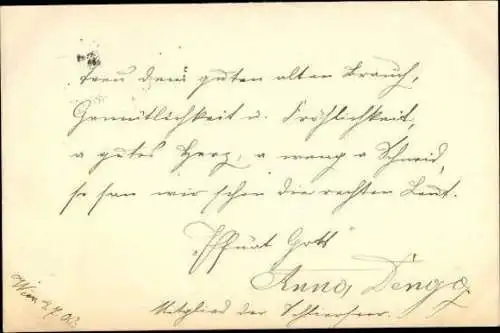 Treu dem guten alten Brauch,
Gemütlichkeit u. Fröhlichkeit,
a gutes Herz, a weng a Schneid,
so san wir schon die rechten Leut.
"Pfüat Gott"
Anna Dengg
Mitglied der Schlierseer.
Wien 4. 03